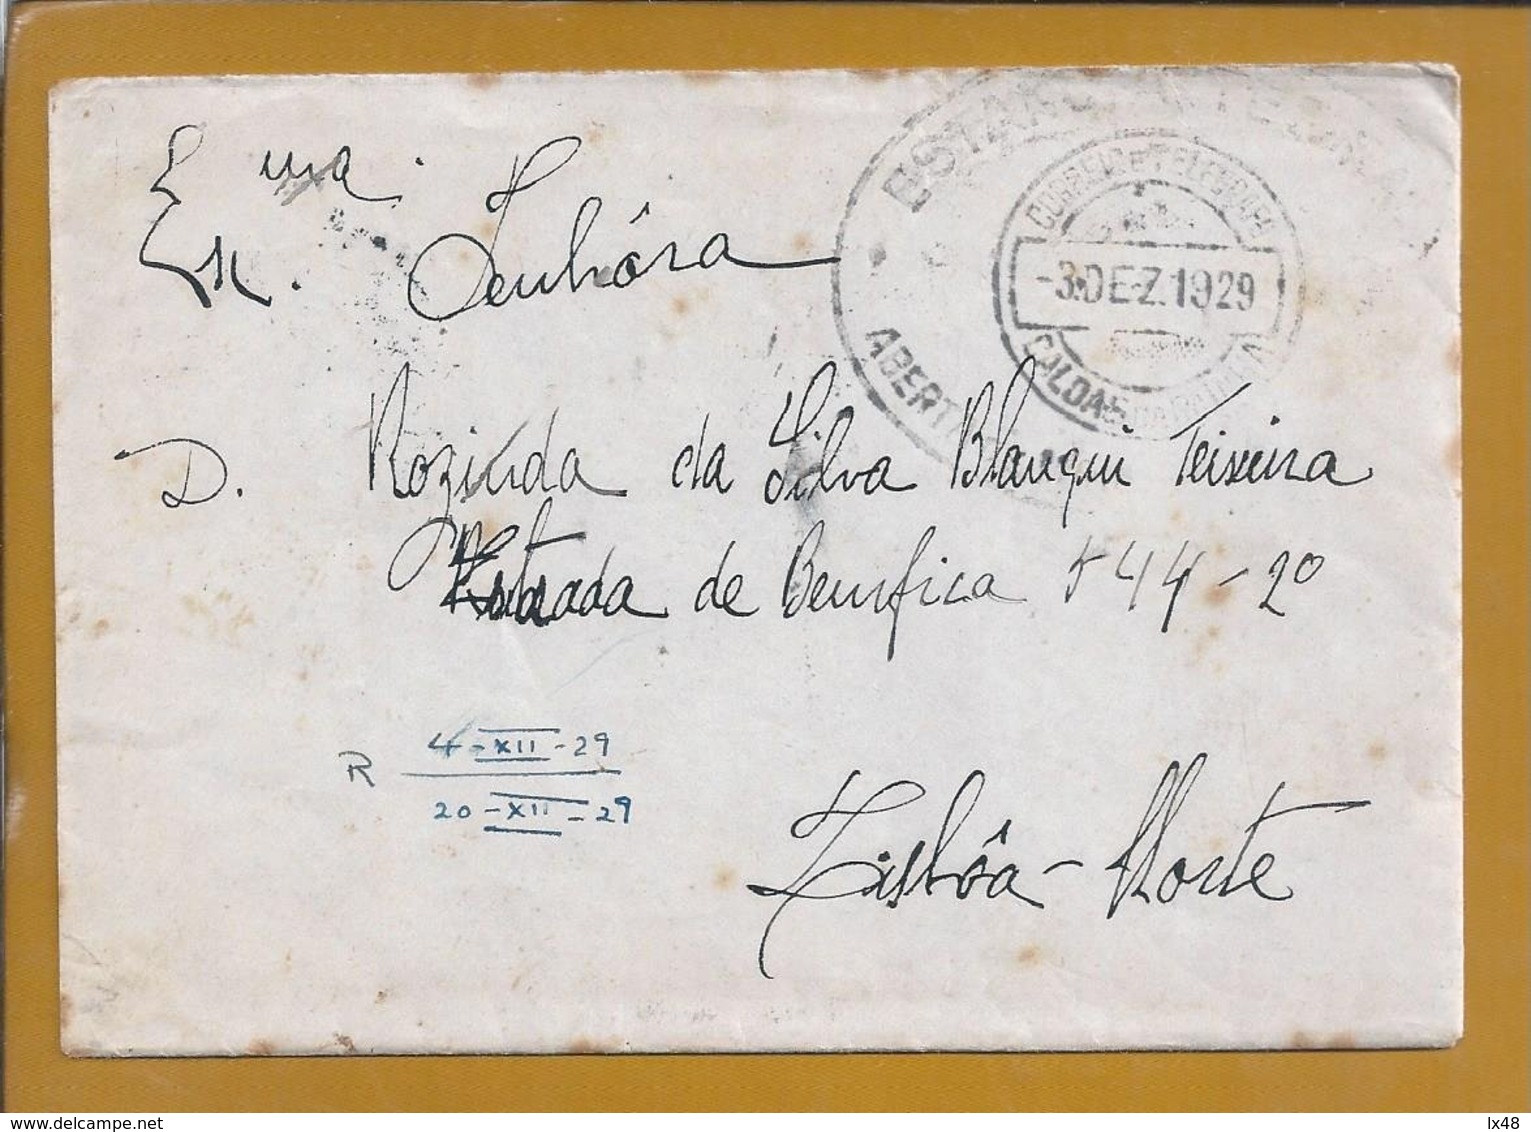 Exma. Senhôra
D. Rozinda da Silva Blanqui Teixeira
Estrada de Bemfica 544-2º
Lisbôa-Norte
R 4-XII-29
20-XII-29
CORREIO E TELEGRAFO
-3.DEZ.1929
CALDAS DA RAINHA
delcampe.net
lx48